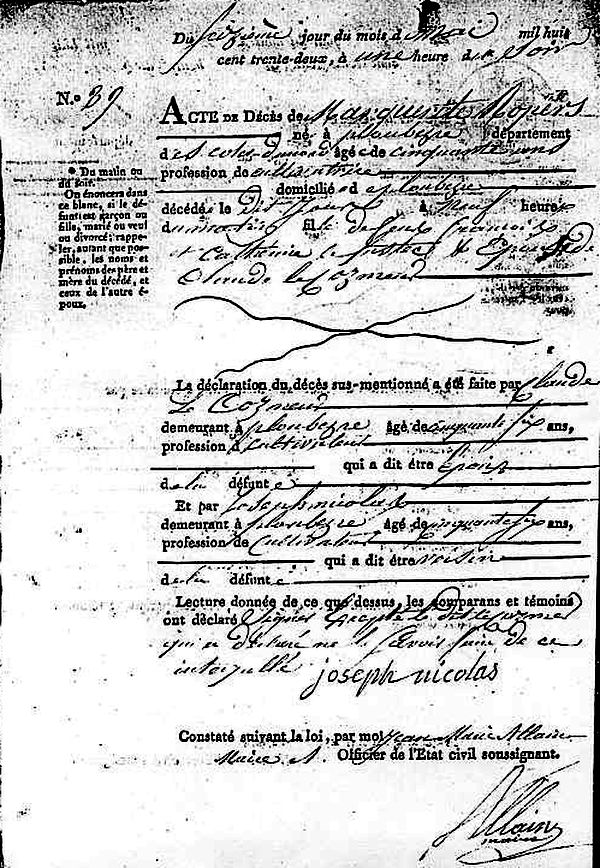 Du seizième jour du mois de Mai mil huit
cent trente-deux, à une heure du Soir
N.º 39
ACTE DE Décès de Marguerite
né à ploubezre département
des cotes-du-nord âgé de cinquante ans
profession de
domicilié à ploubezre
décédé le dit jour à neuf heures
du matin fille de feus françois
et Catherine le & Epouse de
Claude le Cozmeur
* Du matin ou
du soir.
On énoncera dans
ce blanc, si le dé-
funt est garçon ou
fille, marié ou veuf
ou divorcé; rappe-
ler, autant que pos-
sible, les noms et
prénoms des père et
mère du décédé, et
ceux de l'autre é-
poux.
La déclaration du décès sus-mentionné a été faite par Claude
Le Cozmeur
demeurant à ploubezre âgé de cinquante six ans,
profession de Cultivateur
qui a dit être Epoux
de la défunte
Et par Joseph nicolas
demeurant à ploubezre âgé de cinquante six ans,
profession de Cultivateur
qui a dit être voisin
de la défunte
Lecture donnée de ce que dessus, les comparans et témoins
ont déclaré Signer Excepté le
qui a déclaré ne le Savoir faire de ce
interpellé
joseph nicolas
Constaté suivant la loi, par moi Jean Marie Allain
Maire et Officier de l'Etat civil soussignant.
Allain
maire